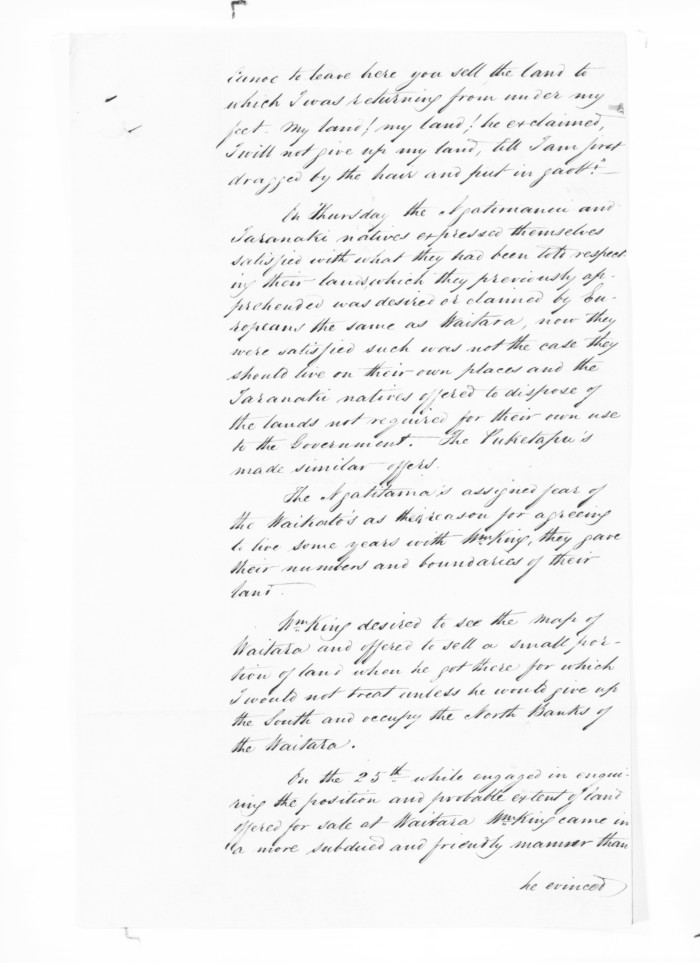 canoe to leave here you sell the land to
which I was returning from under my
feet. My land! my land! he exclaimed,
I will not give up my land, till I am first
dragged by the hair and put in gaol &c.—
On Thursday the Ngatimaniu and
Taranaki natives expressed themselves
satisfied with what they had been told respect
ing their lands which they previously ap-
prehended was desired or claimed by Eu-
ropeans the same as Waitara, now they
were satisfied such was not the case they
should live on their own places and the
Taranaki natives offered to dispose of
the lands not required for their own use
to the Government. The Puketapu's
made similar offers.
The Ngatitama's assigned fear of
the Waikato's as their reason for agreeing
to live some years with Wm King, they gave
their numbers and boundaries of their
land.
Wm King desired to see the map of
Waitara and offered to sell a small por-
tion of land when he got there for which
I would not treat unless he would give up
the South and occupy the North Banks of
the Waitara.
On the 25th while engaged in enqui-
ring the position and probable extent of land
offered for sale at Waitara Wm King came in
a more subdued and friendly manner than
he evinced